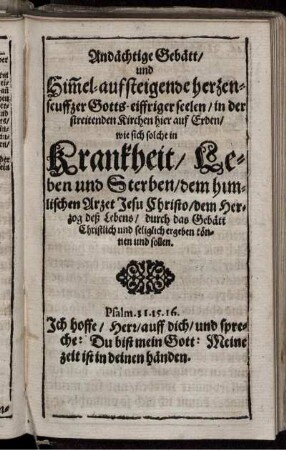 Andächtige Gebätt/
und
Him̃el-aufsteigende herzen-
seuffzer Gotts-eiffriger seelen/ in der
streitenden Kirchen hier auf Erden/
wie sich solche in
Krankheit/ Le-
ben und Sterben/dem him-
lischen Arzet Jesu Christo/dem Her-
zog deß Lebens/ durch das Gebätt
Christlich und seliglich ergeben kön-
nen und sollen.
Psalm. 31.15.16.
Ich hoffe/ Herr/auff dich/und spre-
che: Du bist mein Gott: Meine
zeit ist in deinen händen.